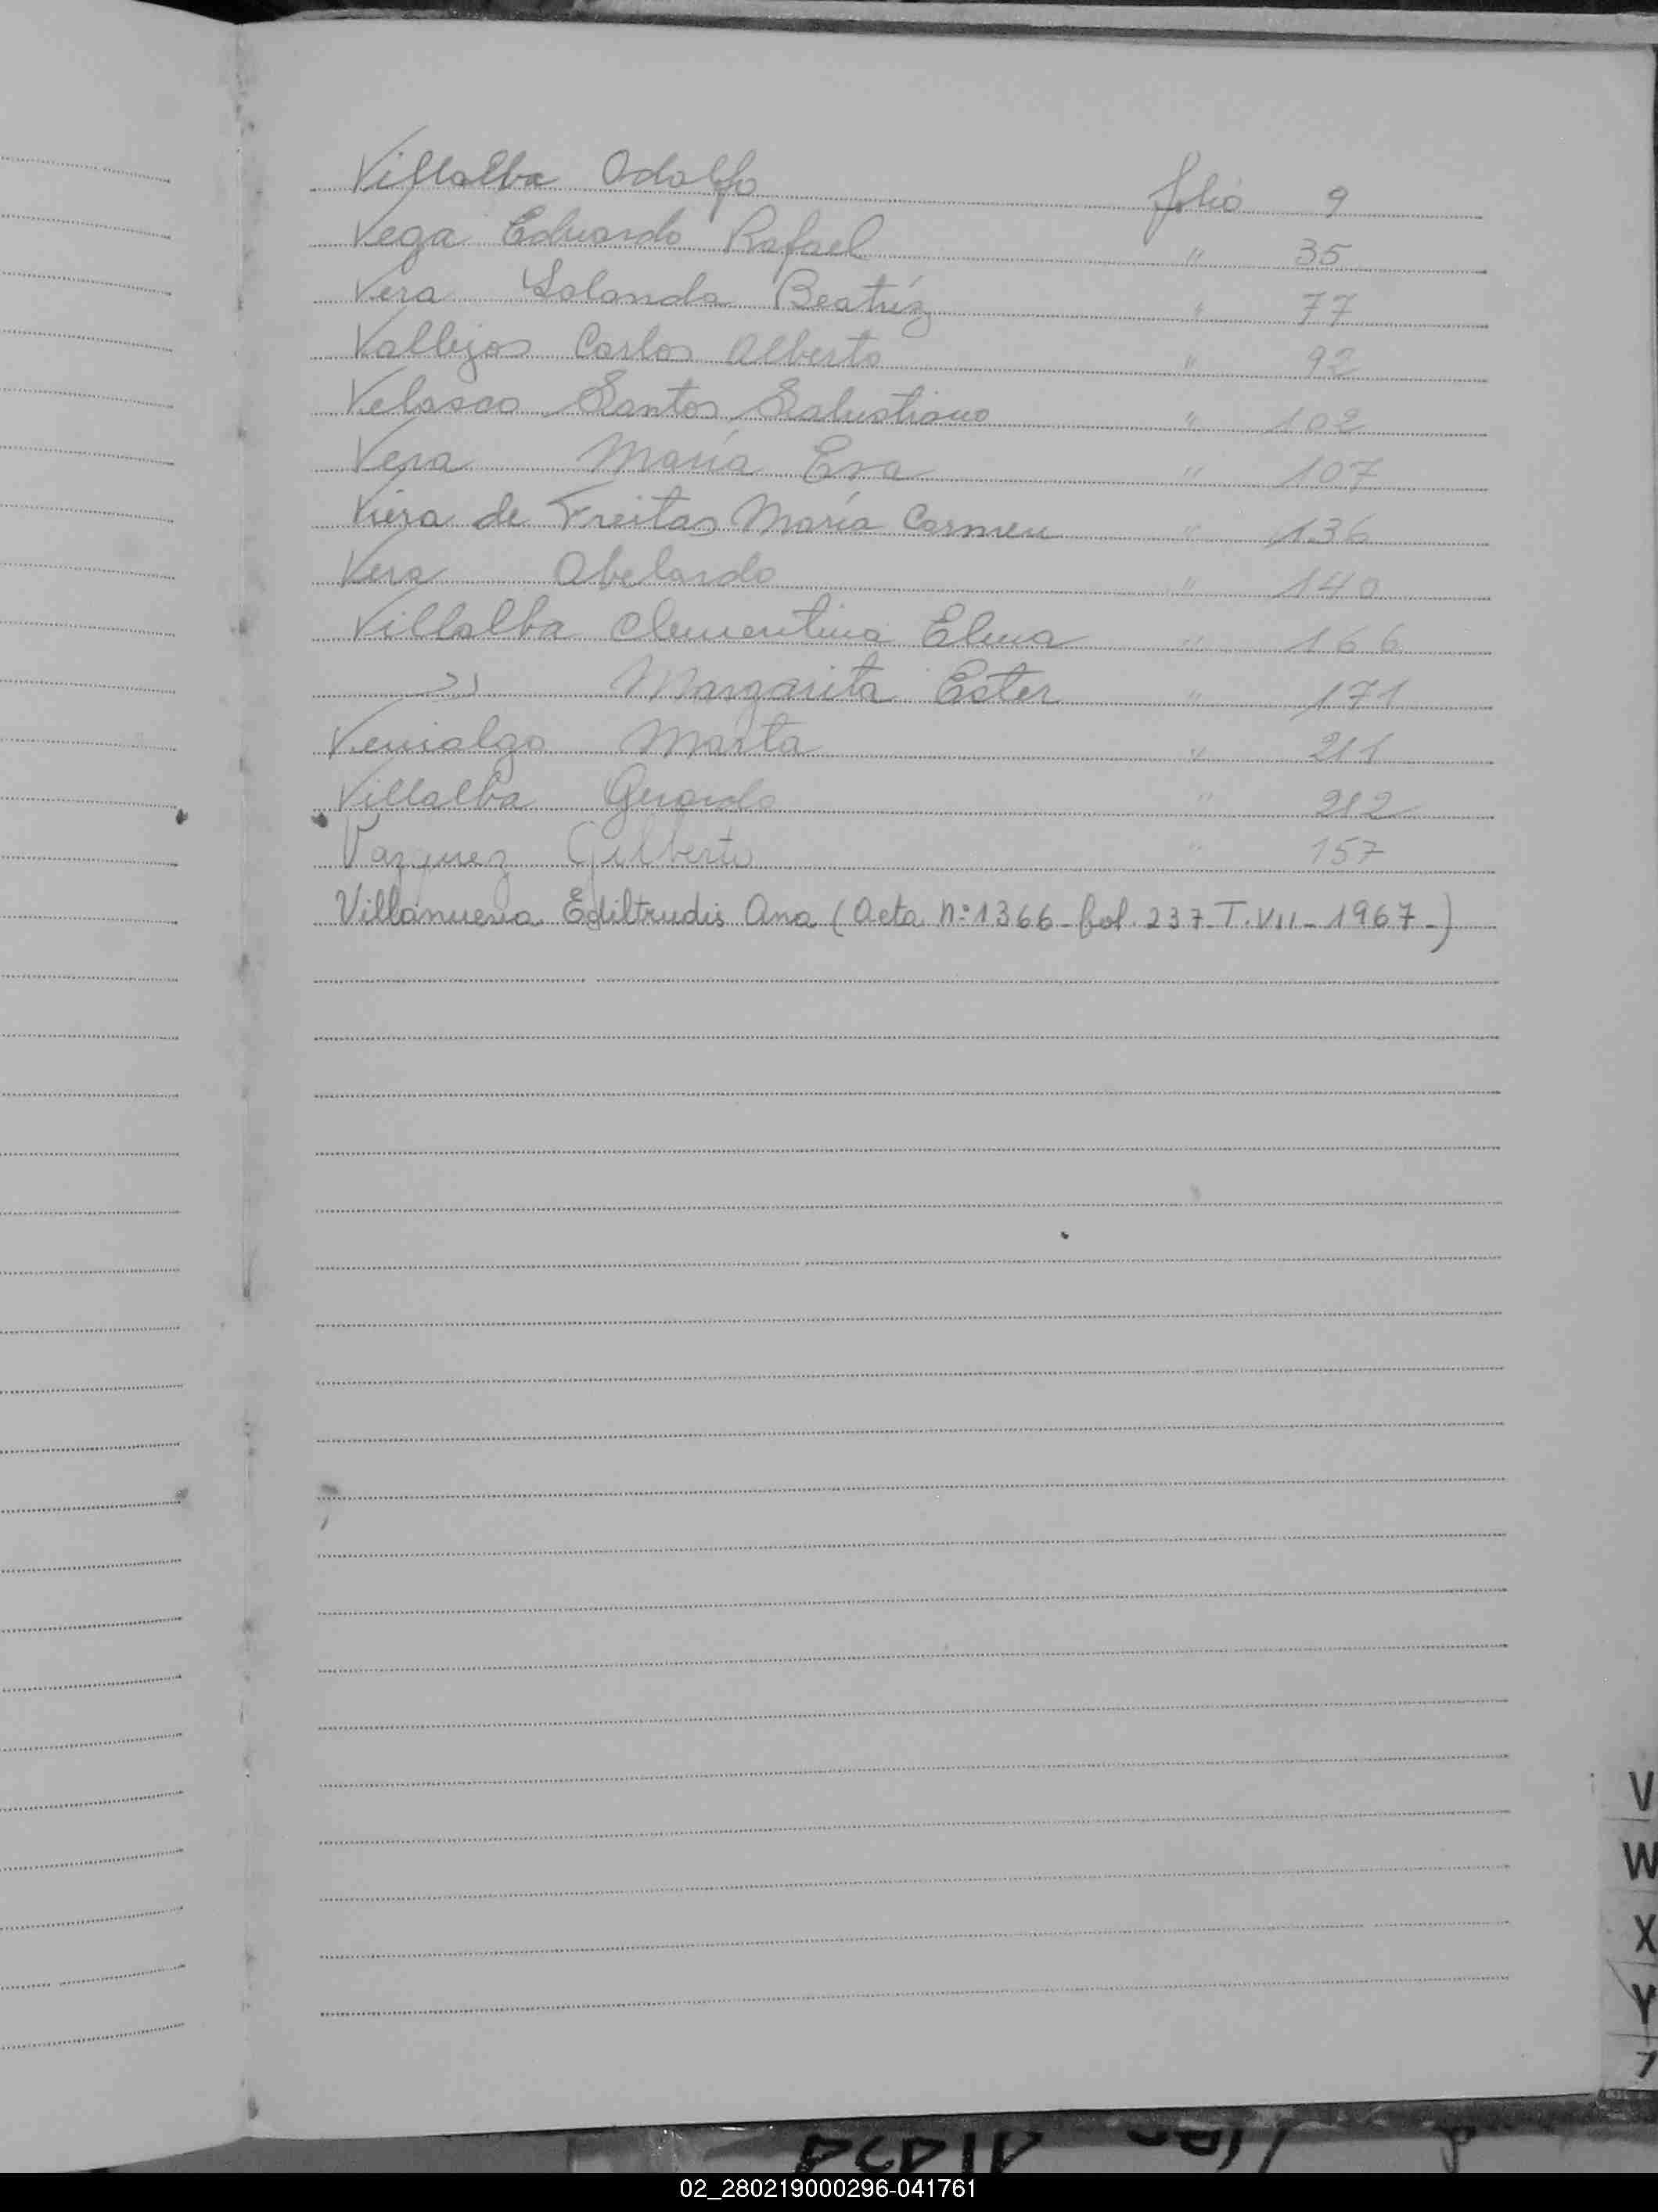 Villalba Adolfo folio 9
Vega Eduardo Rafael " 35
Vera Yolanda Beatríz " 77
Vallejos Carlos Alberto " 92
Velasco Santos Salustiano " 102
Vera María Eva " 107
Viera de Freitas María Carmen " 136
Vera Abelardo " 140
Villalba Clementina Elma " 166
" Margarita Ester " 171
Venialgo Marta " 211
Villalba Gerardo " 212
Vazquez Gilberto " 157
Villanueva Ediltrudis Ana (Acta n:º 1366 - fol. 237 - T. VII - 1967 -)
V
W
X
Y
02_280219000296-041761